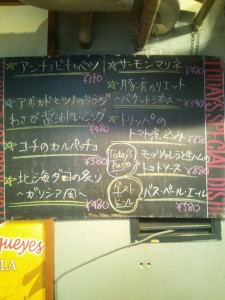 アンチョビキャベツ
¥390
アボカドとツナのサラダ
わさび醤油ドレッシング
¥480
コチのカルパッチョ
¥580
北海ダコの炙り
~ガリシア風~
¥480
サーモンマリネ
¥480
豚肉のリエット
~バケット添え~
¥390
トリッパの
トマト煮込み
Today's Pasta
モッツァレラと生ハムの
トマトソース
¥880
ゲストビール
バス・ペール・エール
¥580
TODAY'S SPECIALITIES